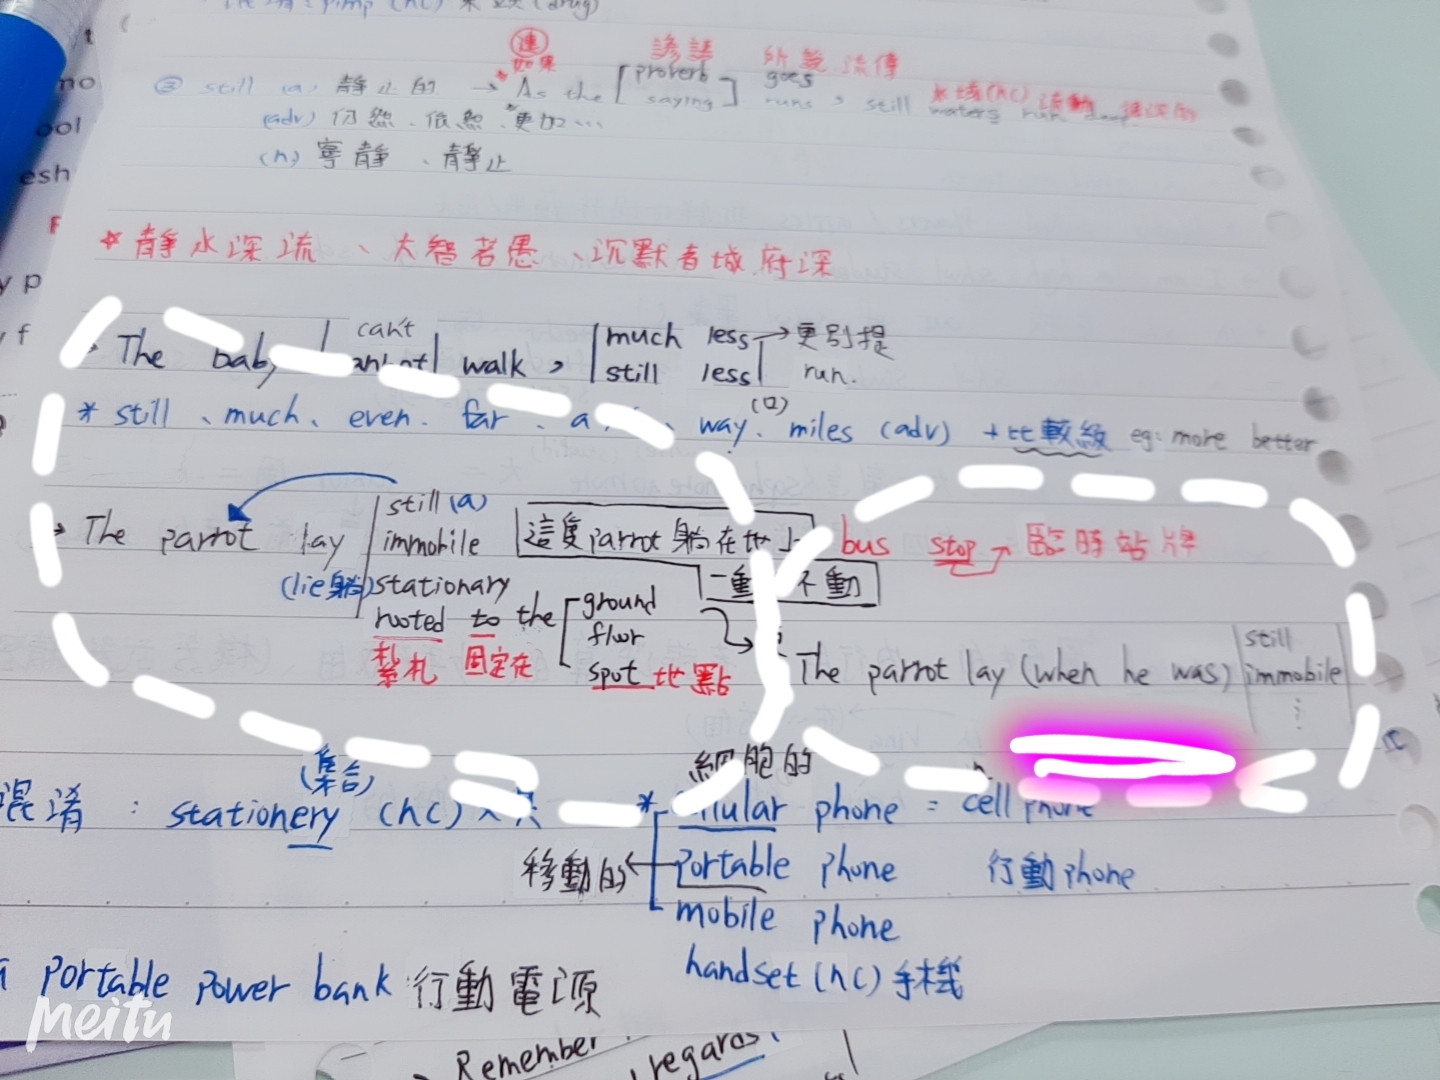 pimp (nc) (drug)
連 諺語 所說 流傳
如果 proverb goes 水域(nc) 流動
② still (a) 靜止的 → As the saying runs, still waters run deep.
(adv) 仍然、依然、更加…
(n) 寧靜、靜止
* 靜水深流、大智若愚、沉默者城府深
can't much less → 更別提
The walk, still less run.
(口)
* still、much、even、far、way、miles (adv) + 比較級 eg: more better
still (a)
The parrot lay immobile 這隻parrot躺在地上
(lie 躺) stationary 一動不動
rooted to the ground
floor
紮札 固定在 spot 地點
bus stop → 臨時站牌
still
The parrot lay (when he was) immobile
⋮
(集合) 細胞的
混淆 : stationery (nc) phone = cell phone
移動的 ← portable phone 行動phone
mobile phone
handset (nc) 手機
portable power bank 行動電源
Meitu
Remember
regards
mo
ool
esh
y p
y f